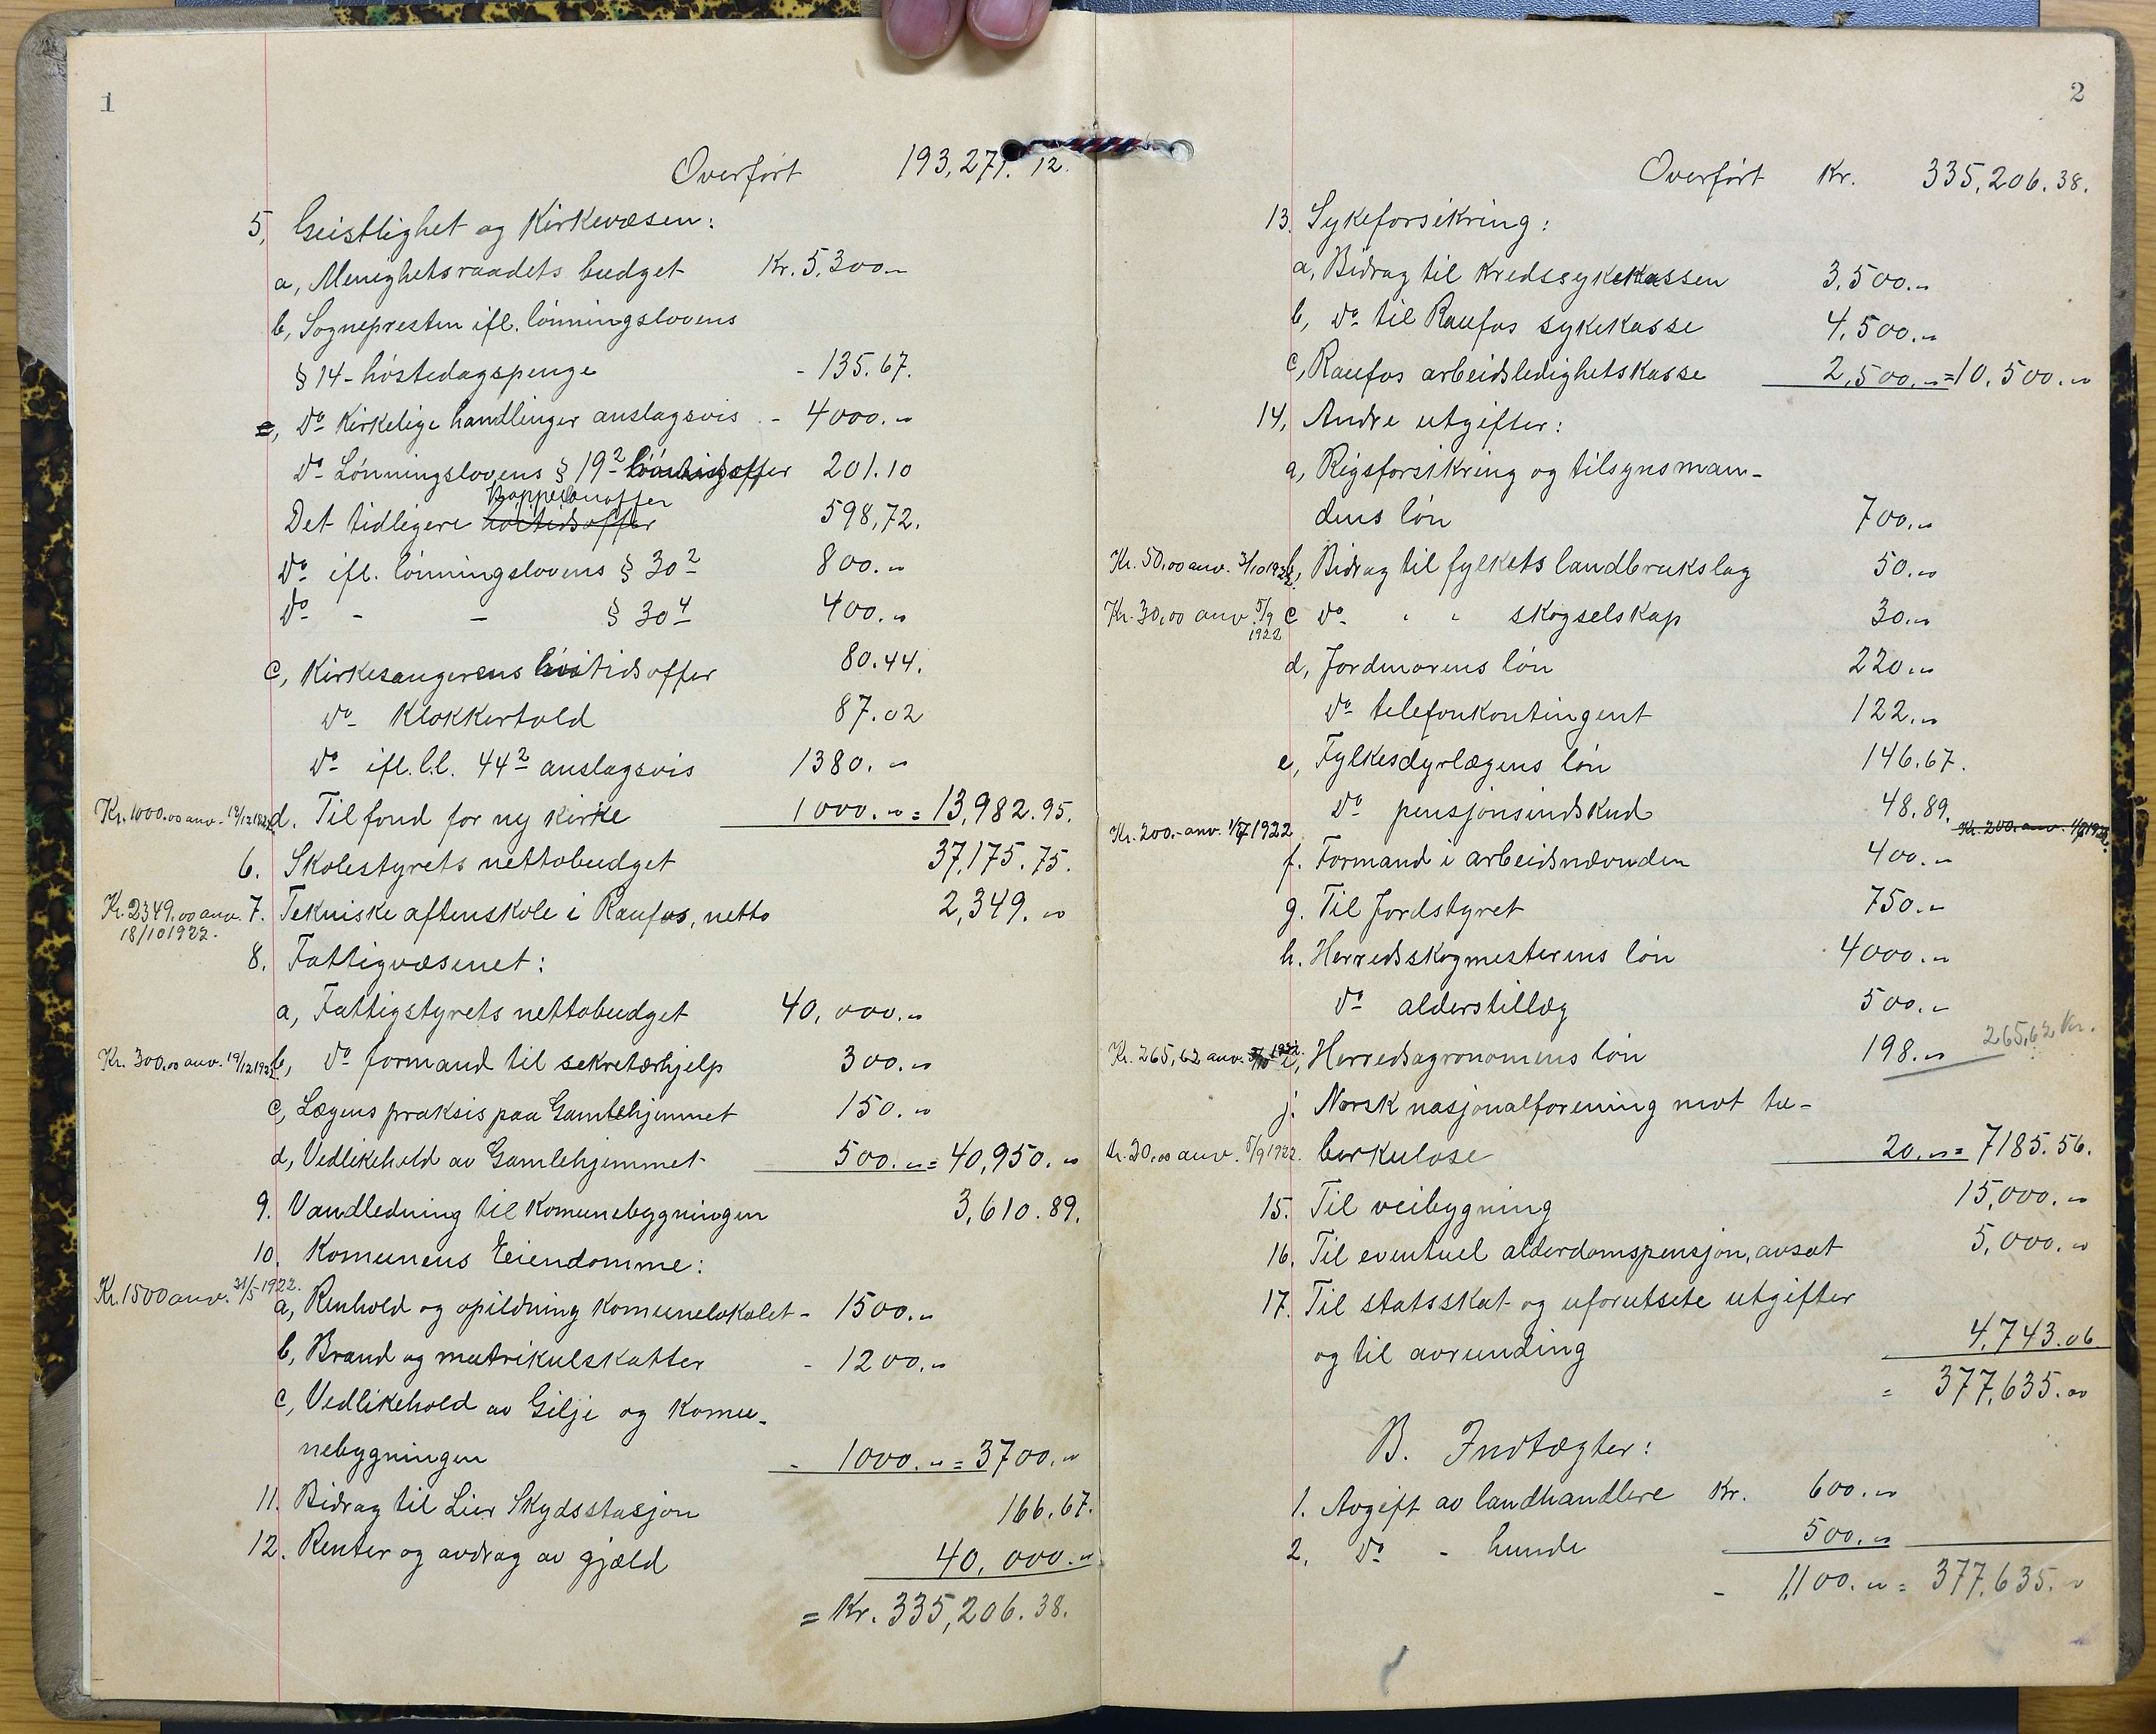 1
Overført 193,271.12.
5, Geistlighet og Kirkevæsen:
a, Menighetsraadets budget Kr. 5,300.-
b, Sognepresten ifl. lønningslovens
§ 14 - høstedagspenge - 135.67.
c, Do Kirkelige handlinger anslagsvis - 4000.-
Do Lønningslovens § 19 2 201.10
Det tidligere 598,72.
Do ifl. lønningslovens § 30 2 800.-
Do - - § 30 4 400.-
c, Kirkesangerens høitidsoffer 80.44.
Do Klokkertold 87.02
Do ifl. l.l. 44 2 anslagsvis 1380.-
Kr. 1000.00 anv. 19/12 1922 d. Til fond for ny kirke 1000.- = 13,982.95.
6. Skolestyrets nettobudget 37,175.75.
Kr. 2349.00 anv. 7. Tekniske aftenskole i Raufos, netto 2,349.00
18/10 1922.
8. Fattigvæsenet:
a, Fattigstyrets nettobudget 40,000.-
Kr. 300.00 anv. 19/12 1922 b, Do formand til sekretærhjelp 300.-
c, Lægens praksis paa Gamlehjemmet 150.-
d, Vedlikehold av Gamlehjemmet 500.- = 40,950.-
9. Vandledning til Komunebygningen 3,610.89.
10. Komunens Eiendomme:
Kr. 1500 anv. 31/5 1922. a, Renhold og opildning Komunelokalet - 1500.-
b, Brand og matrikulskatter - 1200.-
c, Vedlikehold av Gilje og Komu-
nebygningen - 1000.- = 3700.-
11. Bidrag til Lier Skydsstasjon 166.67.
12. Renter og avdrag av gjæld 40,000.-
= Kr. 335,206.38.
2
Overført Kr. 335,206.38.
13. Sykeforsikring:
a, Bidrag til Kredssykekassen 3,500.-
b, Do til Raufos sykekasse 4,500.-
c, Raufos arbeidsledighetskasse 2,500.- = 10,500.-
14, Andre utgifter:
a, Rigsforsikring og tilsynsman-
dens løn 700.-
Kr. 50,00 anv. 3/10 1922 b, Bidrag til fylkets landbrukslag 50.-
Kr. 30,00 anv. 5/9 1922 c Do " " skogselskap 30.-
d, Jordmorens løn 220.-
Do telefonkontingent 122.-
e, Fylkesdyrlægens løn 146.67.
Do pensjonsindskud 48.89.
Kr. 200.- anv. 1/7 1922 Kr. 200 anv. 1/7 1922.
f. Formand i arbeidsnævnden 400.-
g. Til Jordstyret 750.-
h. Herredsskogmesterens løn 4000.-
Do alderstillæg 500.-
Kr. 265,62 anv. 1922. i, Herredsagronomens løn 198.- 265,62 Kr.
j. Norsk nasjonalforening mot tu-
Kr. 20,00 anv. 5/9 1922. berkulose 20.- = 7185.56.
15. Til veibygning 15,000.-
16. Til eventuel alderdomspensjon, avsat 5,000.-
17. Til statsskat og uforutsete utgifter
og til avrunding 4,743.06
= 377,635.00
B. Indtægter:
1. Avgift av landhandlere Kr. 600.-
2. Do - hunde 500.-
- 1,100.- = 377,635.-